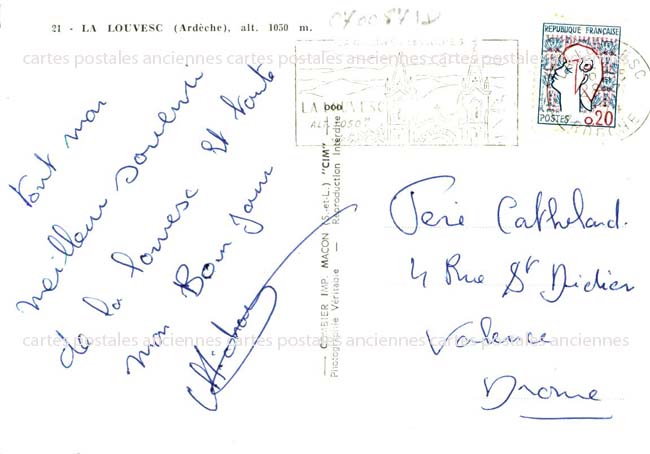 21 - LA LOUVESC (Ardèche), alt. 1050 m.
07005718
REPUBLIQUE FRANÇAISE
POSTES 0,20
LA LOUVESC
ALT. 1050
cartes postales anciennes cartes postales anciennes cartes postales anciennes
tout mon
meilleur souvenir
de la louvesc et toute
mon Bon Jour
Michel
COMBIER IMP. MACON (S.-et-L.) "CIM"
Photographie Véritable — Reproduction Interdite
Catheland.
4 Rue St Didier
Valence
Drome
cartes postales anciennes cartes postales anciennes cartes postales anciennes